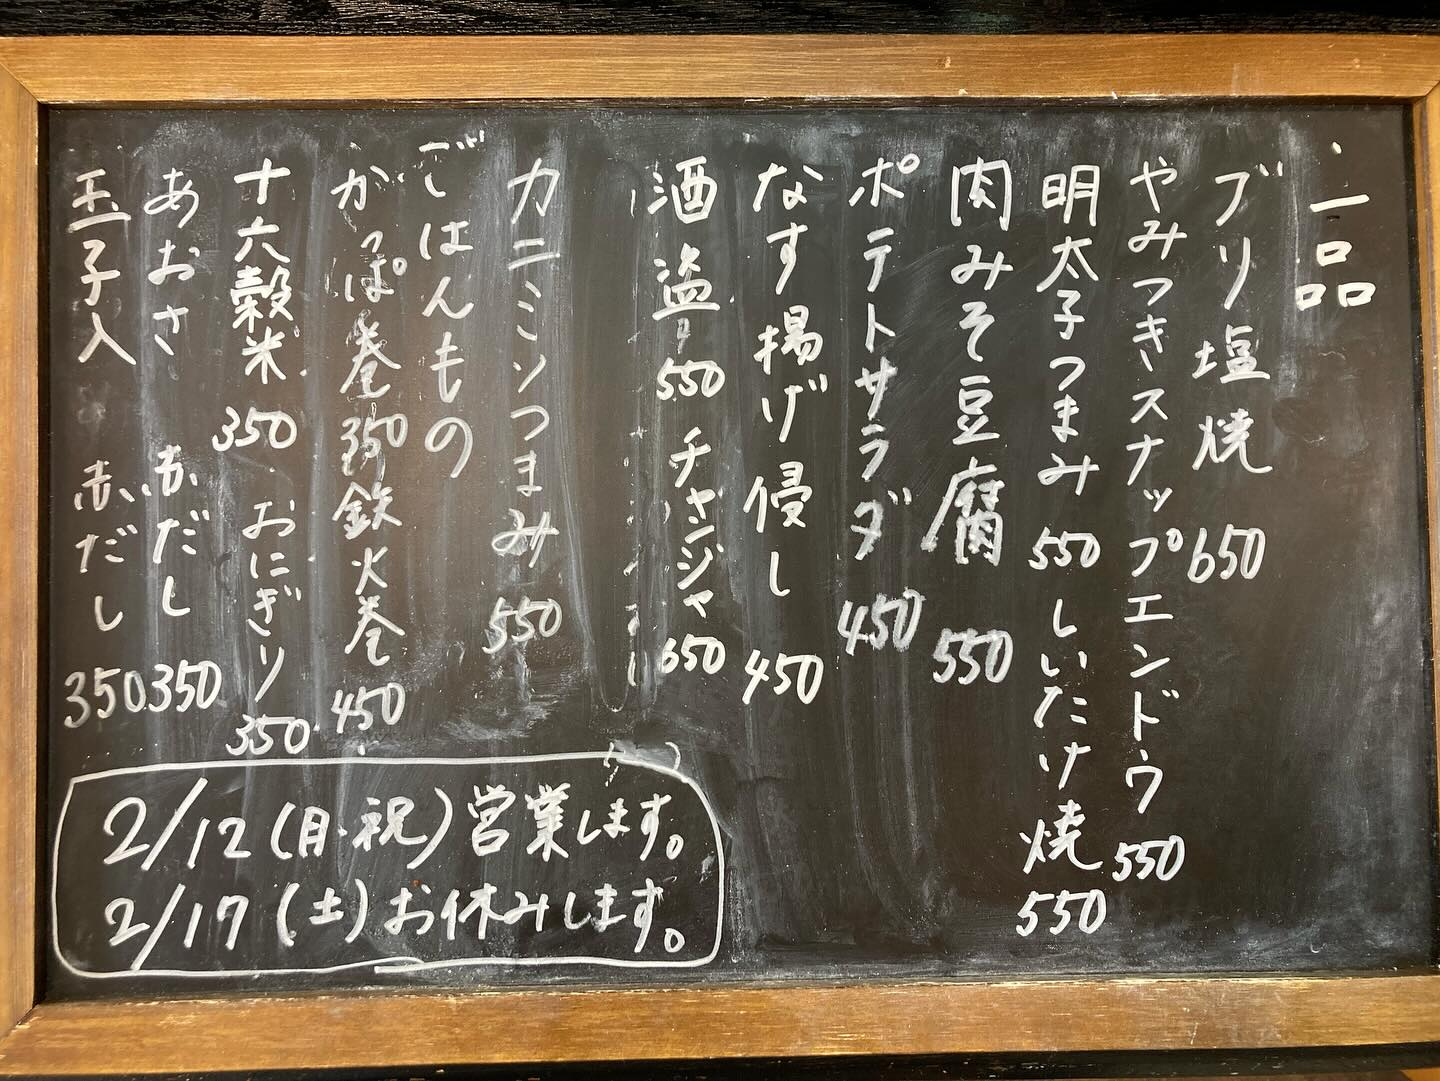 一品
ブリ塩焼 650
やみつきスナップエンドウ 550
明太子つまみ 550 しいたけ焼 550
肉みそ豆腐 550
ポテトサラダ 450
なす揚げ侵し 450
酒盗 550 チャンジャ 650
カニミソつまみ 550
ごはんもの
かっぱ巻 350 鉄火巻 450
十六穀米 350 おにぎり 350
あおさ 赤だし 350
玉子入 赤だし 350
2/12(月・祝)営業します。
2/17(土)お休みします。